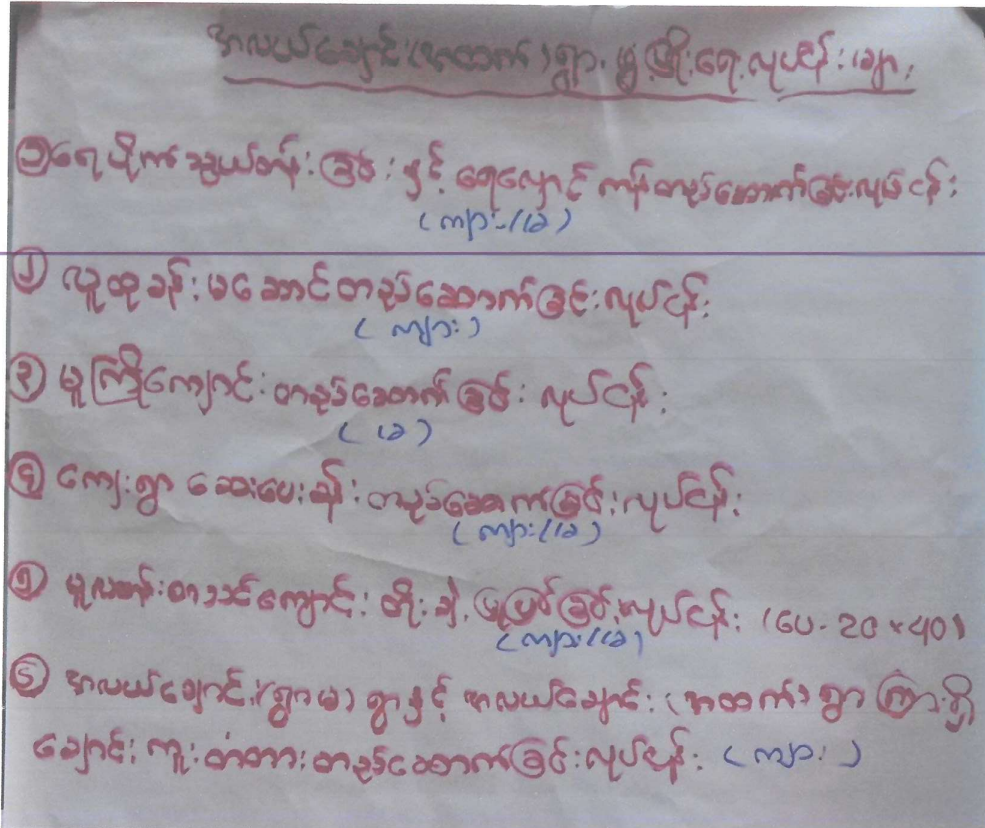 အလယ်ချောင်း(အထက်)ရွာ၊ ဖွံ့ဖြိုးရေးလုပ်ငန်းများ
၁ ရေပိုက်သွယ်တန်းခြင်း နှင့် ရေလှောင်ကန်တည်ဆောက်ခြင်းလုပ်ငန်း
(ကျား/မ)
၂ လူထုခန်းမဆောင်တည်ဆောက်ခြင်းလုပ်ငန်း
(ကျား)
၃ မူကြိုကျောင်းတည်ဆောက်ခြင်း လုပ်ငန်း
(မ)
၄ ကျေးရွာ ဆေးပေးခန်း တည်ဆောက်ခြင်းလုပ်ငန်း
(ကျား/မ)
၅ မူလတန်းစာသင်ကျောင်း တိုးချဲ့ ပြုပြင်ခြင်းလုပ်ငန်း (ပေ-20×40)
(ကျား/မ)
၆ အလယ်ချောင်း(ရွာမ) ရွာနှင့် အလယ်ချောင်း (အထက်) ရွာ ကြားရှိ
ချောင်းကူးတံတားတည်ဆောက်ခြင်းလုပ်ငန်း (ကျား)